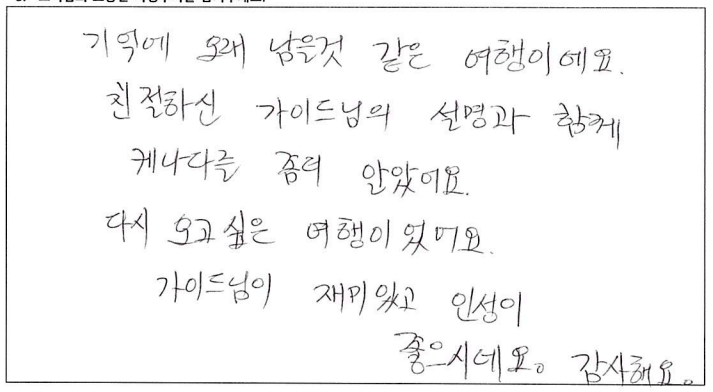 기억에 오래 남을것 같은 여행이에요.
친절하신 가이드님의 설명과 함께
케나다를 좀더 안았어요.
다시 오고싶은 여행이었어요.
가이드님이 재미있고 인성이
좋으시네요. 감사해요.